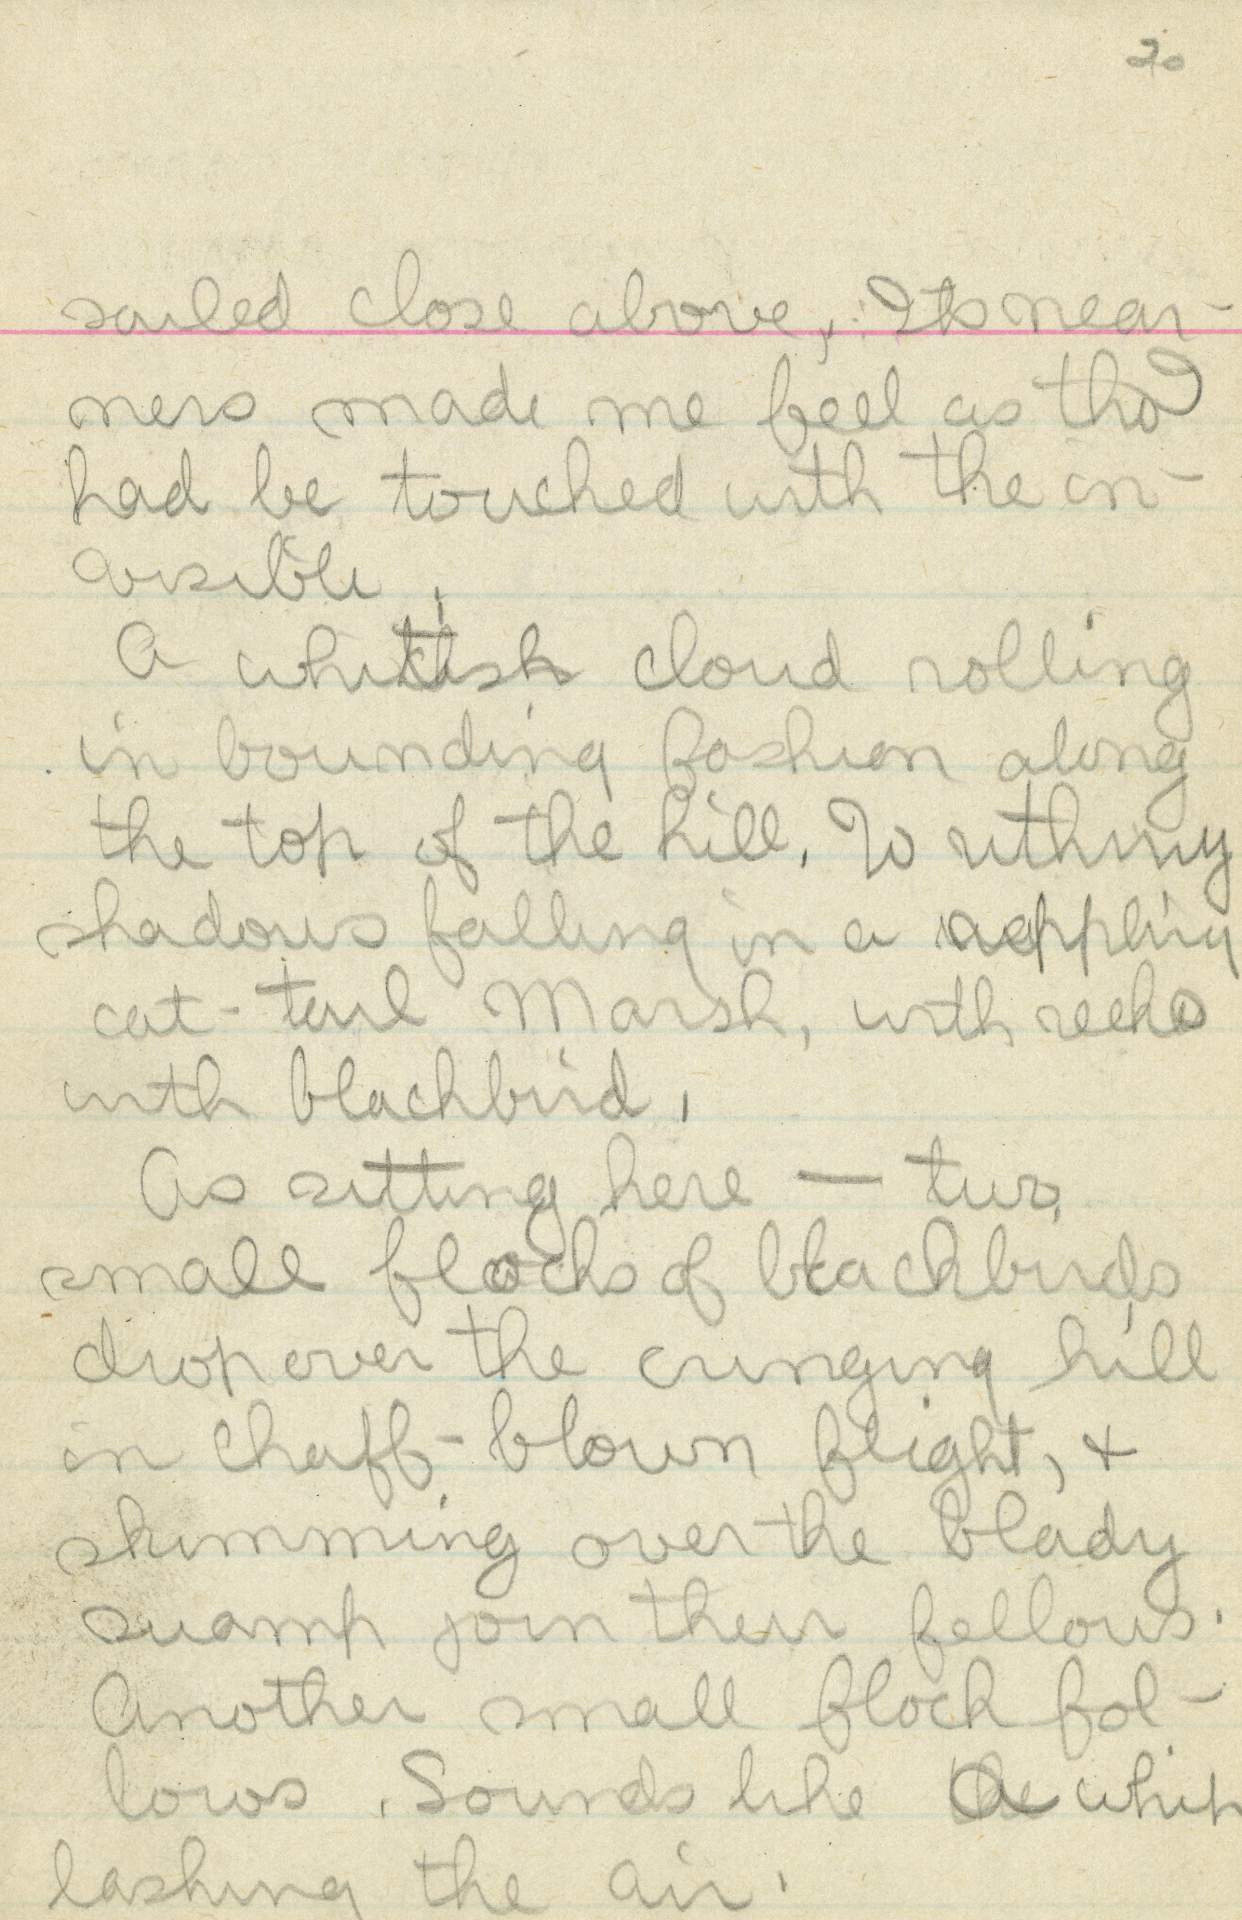 20
sailed close above, Its near-
ness made me feel as tho I
had be touched with the in-
visible.
A whitish cloud rolling
in bounding fashion along
the top of the hill. Writhing
shadows falling in a rippling
cat-tail Marsh, with reeks
with blackbird.
As sitting here — two
small flocks of blackbirds
drop over the cringing hill
in chaff-blown flight, +
skimming over the blady
swamp join their fellows.
Another small flock fol-
lows. Sounds like a whip
lashing the air.